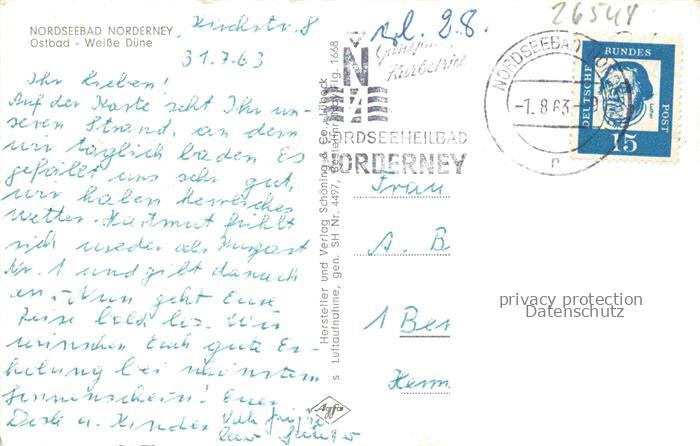 NORDSEEBAD NORDERNEY
Ostbad - Weiße Düne
Kirchstr. 8
31.7.63
Ihr Lieben!
Auf der Karte seht Ihr un-
seren Strand, an dem
wir täglich baden. Es
gefällt uns sehr gut,
wir haben herrliches
Wetter. Hartmut fühlt
sich wieder als Kurgast
Nr. 1 und gibt danach
an. Nun geht Eure
Reise bald los. Wir
wünschen Euch gute Er-
holung bei schönstem
Sonnenschein! Eure
Dörte u. Kinder
Hersteller und Verlag Schöning & Co., Lübeck
s Luftaufnahme, gen. SH Nr. 4497, Bestellnr. 1668
Agfa
28.
26548
N
NORDSEEHEILBAD
NORDERNEY
NORDSEEBAD
-1.8.63
n
DEUTSCHE BUNDES POST
15
Frau
A. B
1 Ber
Herm
privacy protection
Datenschutz